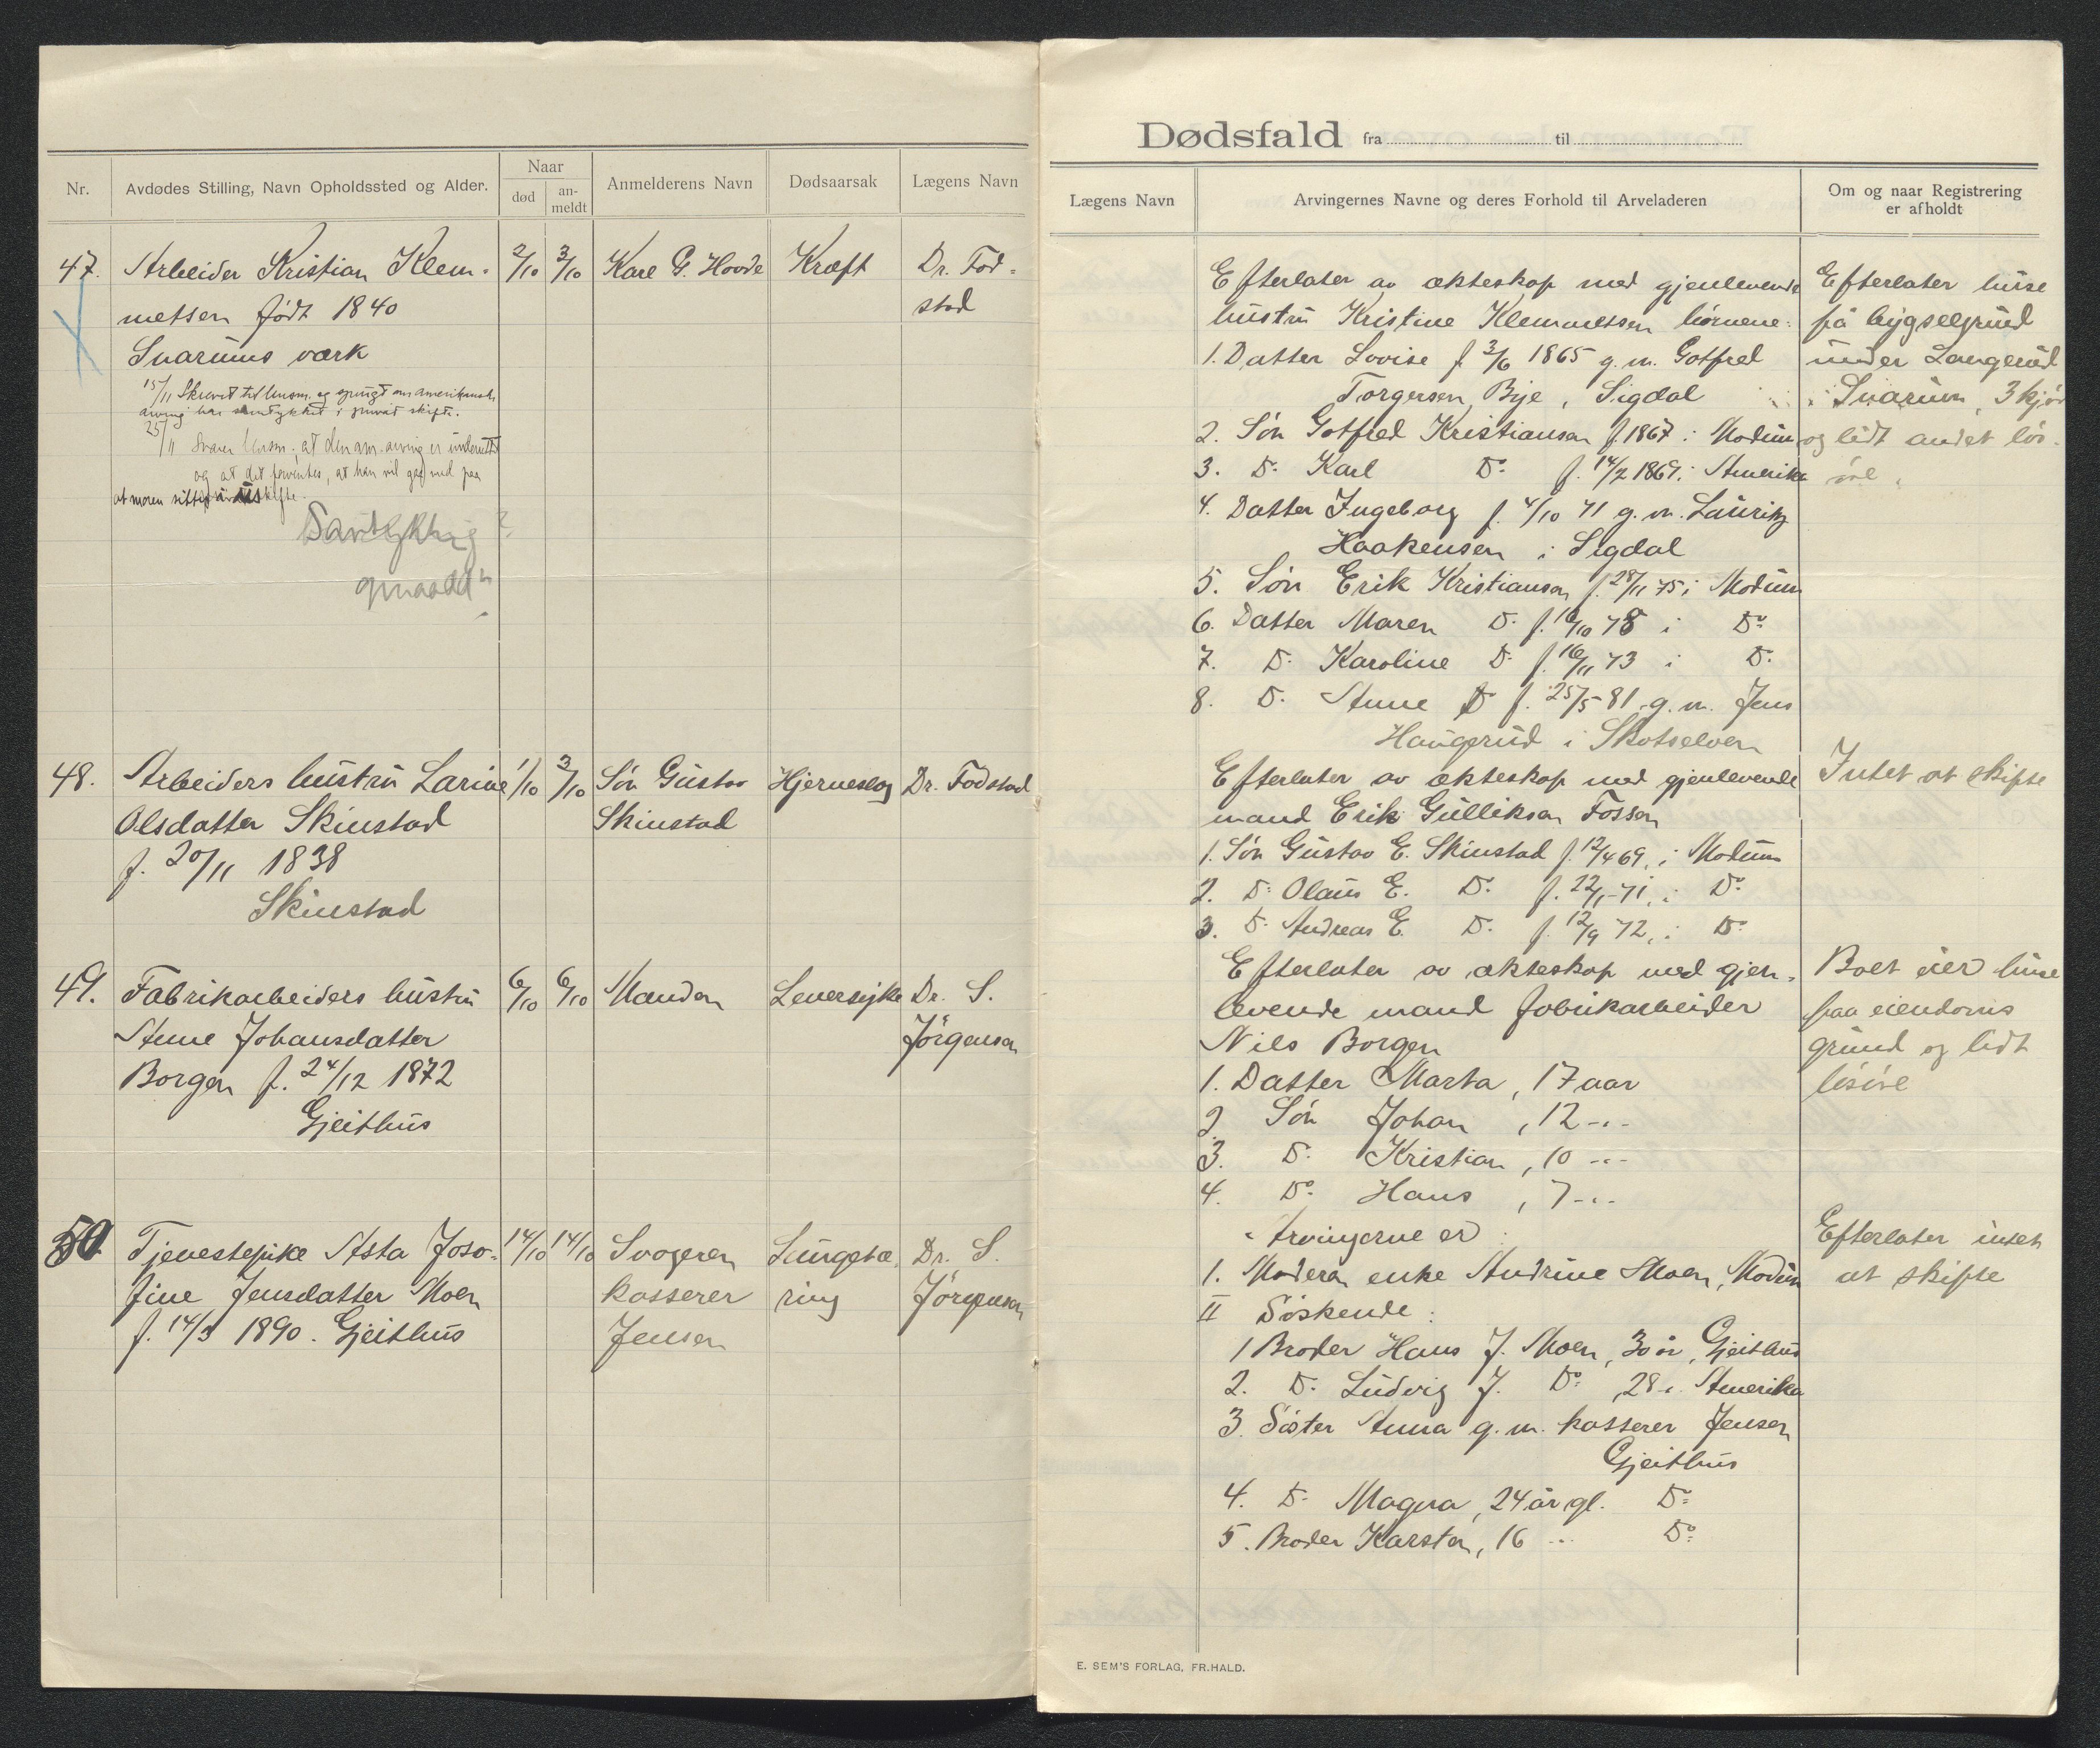 Nr.
Avdødes Stilling, Navn Opholdssted og Alder.
Naar
død
an-
meldt
Anmelderens Navn
Dødsaarsak
Lægens Navn
47. Arbeider Kristian Klem-
metsen født 1840
Snarums værk
2/10 3/10 Karl G. Hovde Kræft Dr. Fod-
stad
15/11 Skrevet til lensm. og spurgt om amerikansk
arving har samtykket i privat skifte.
25/11 Svarer lensm., at den am. arving er underrettet
og at det forventes, at han vil gaa ind paa
at moren sitter i uskifte.
48. Arbeiders hustru Larine 1/10 3/10 Søn Gustav Hjerneslag Dr. Fodstad
Olsdatter Skinstad Skinstad
f. 20/11 1838
Skinstad
49. Fabrikarbeiders hustru 6/10 6/10 Manden Leversyke Dr. S.
Anne Johansdatter Jörgensen
Borgen f. 24/12 1872
Gjeithus
50 Tjenestepike Asta Joso- 14/10 14/10 Svogeren Lungetæ- Dr. S.
fine Jensdatter Moen kasserer ring Jörgensen
f. 14/3 1890. Gjeithus Jensen
Dødsfald fra til
Lægens Navn
Arvingernes Navne og deres Forhold til Arveladeren
Om og naar Registrering
er afholdt
Efterlater av ekteskap med gjenlevende
hustru Kristine Klemmetsen börnene:
1. Datter Lovise f. 3/6 1865 g. m. Gotfred
Torgersen Bye, Sigdal
2. Sön Gotfred Kristiansen f. 1867 i Modum
3. Do Karl Do f. 14/2 1869 i Amerika
4. Datter Ingeborg f. 4/10 71 g. m. Lauritz
Haakensen i Sigdal
5. Sön Erik Kristiansen f. 28/11 75 i Modum
6. Datter Maren Do f. /10 78 i Do
7. Do Karoline Do f. 16/11 73 i Do
8. Do Anne Do f. 25/5 81 g. m. Jens
Haugerud i Skotselven
Efterlater huse
på bygselgrund
under Langerud
i Snarum, 3 kjör
og lidt andet lös-
öre.
Efterlater av ekteskap med gjenlevende
mand Erik Gulliksen Fossen
1. Sön Gustav E. Skinstad f. 12/4 69, i Modum
2. Do Olaus E. Do f. 22/1 71, i Do
3. Do Andreas E. Do f. 12/9 72, i Do
Intet at skifte
Efterlater av ekteskap med gjen-
levende mand fabrikarbeider
Nils Borgen
1. Datter Marta, 17 aar
2. Sön Johan, 12 -"-
3. Do Kristian, 10 -"-
4. Do Hans, 7 -"-
Boet eier huse
paa eiendoms
grund og lidt
lösöre
Arvingerne er:
1. Moderen enke Andrine Moen, Modum
II Söskende:
1 Broder Hans J. Moen, 30 år, Gjeithus
2. Do Ludvig J. Do, 28 i Amerika
3. Söster Anna g. m. kasserer Jensen
Gjeithus
4. Do Magna, 24 år gl. Do
5. Broder Karsten, 16 -"- Do
Efterlater intet
at skifte
E. SEM'S FORLAG, FR.HALD.